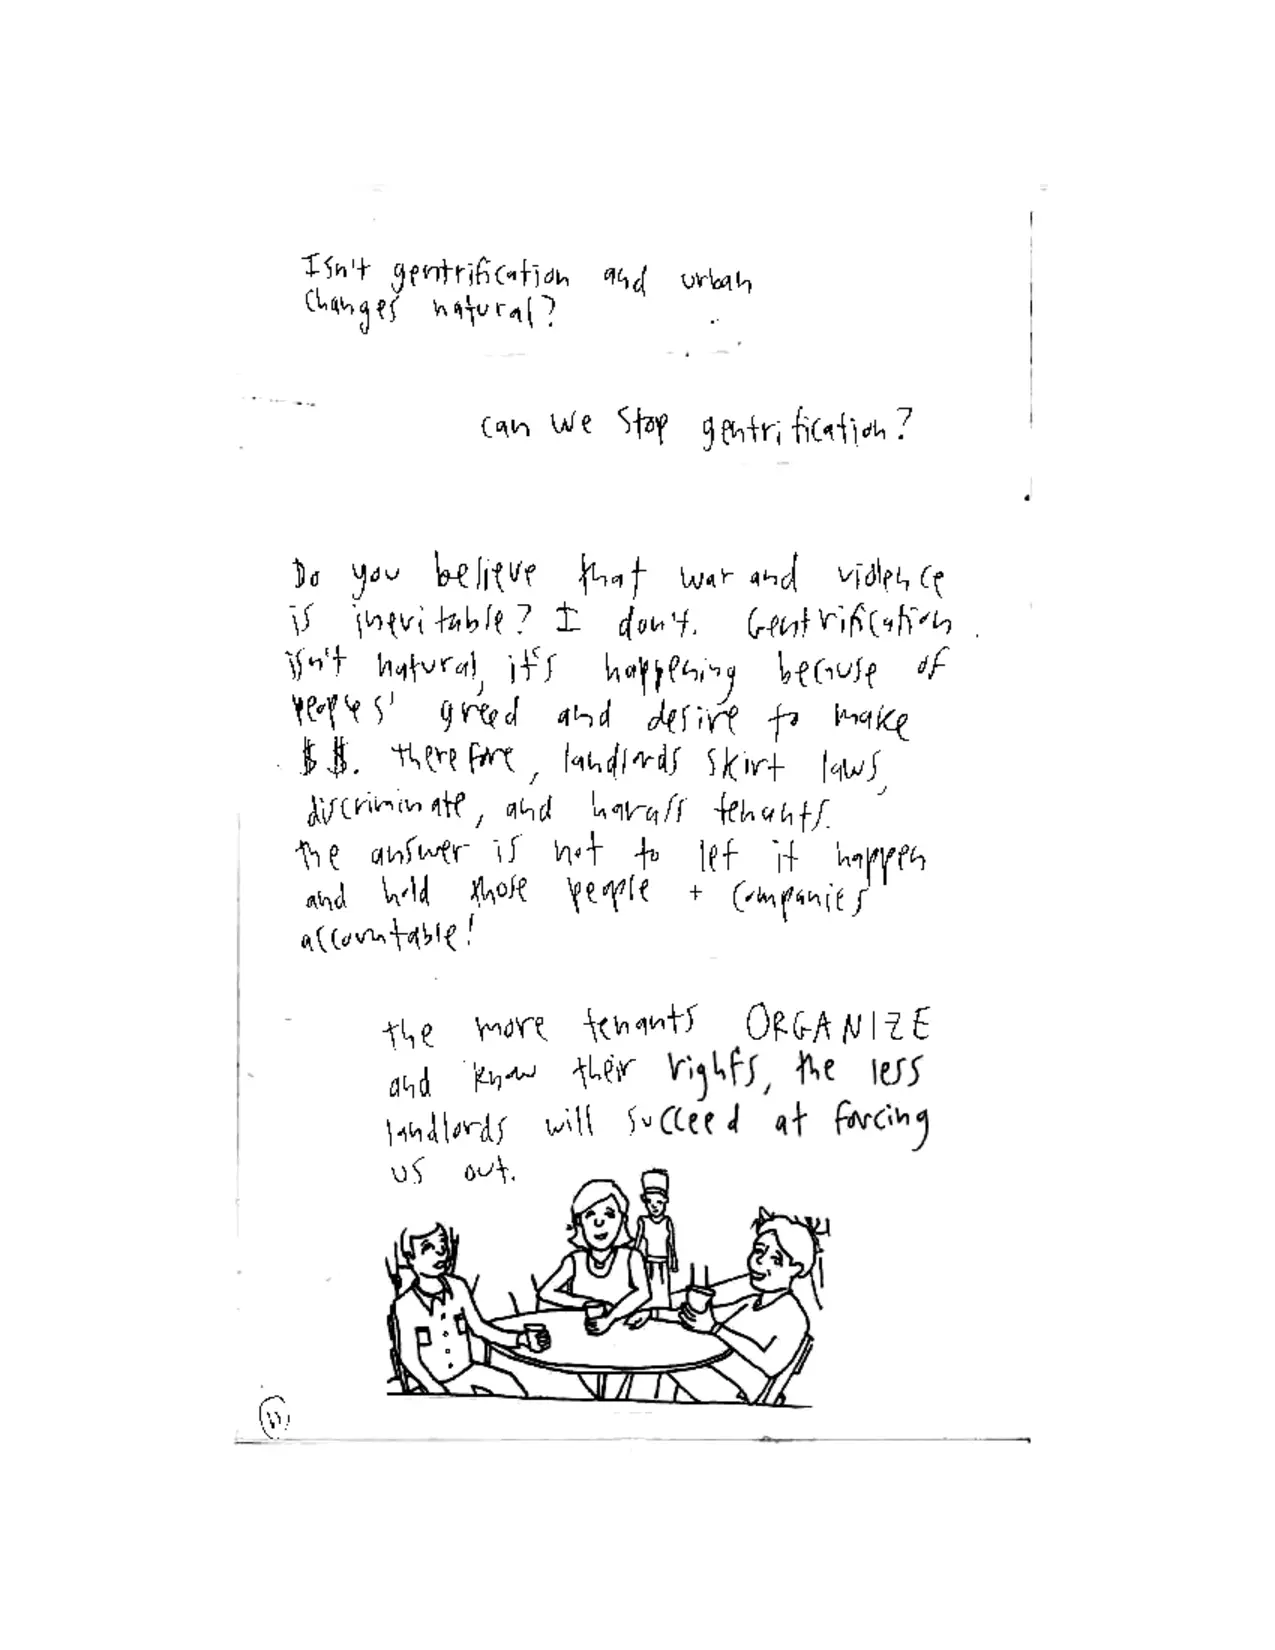 Isn't gentrification and urban
changes natural?
can we stop gentrification?
Do you believe that war and violence
is inevitable? I don't. Gentrification
isn't natural, it's happening because of
peoples' greed and desire to make
$$. therefore, landlords skirt laws,
discriminate, and harass tenants.
the answer is not to let it happen
and hold those people + companies
accountable!
the more tenants ORGANIZE
and know their rights, the less
landlords will succeed at forcing
us out.